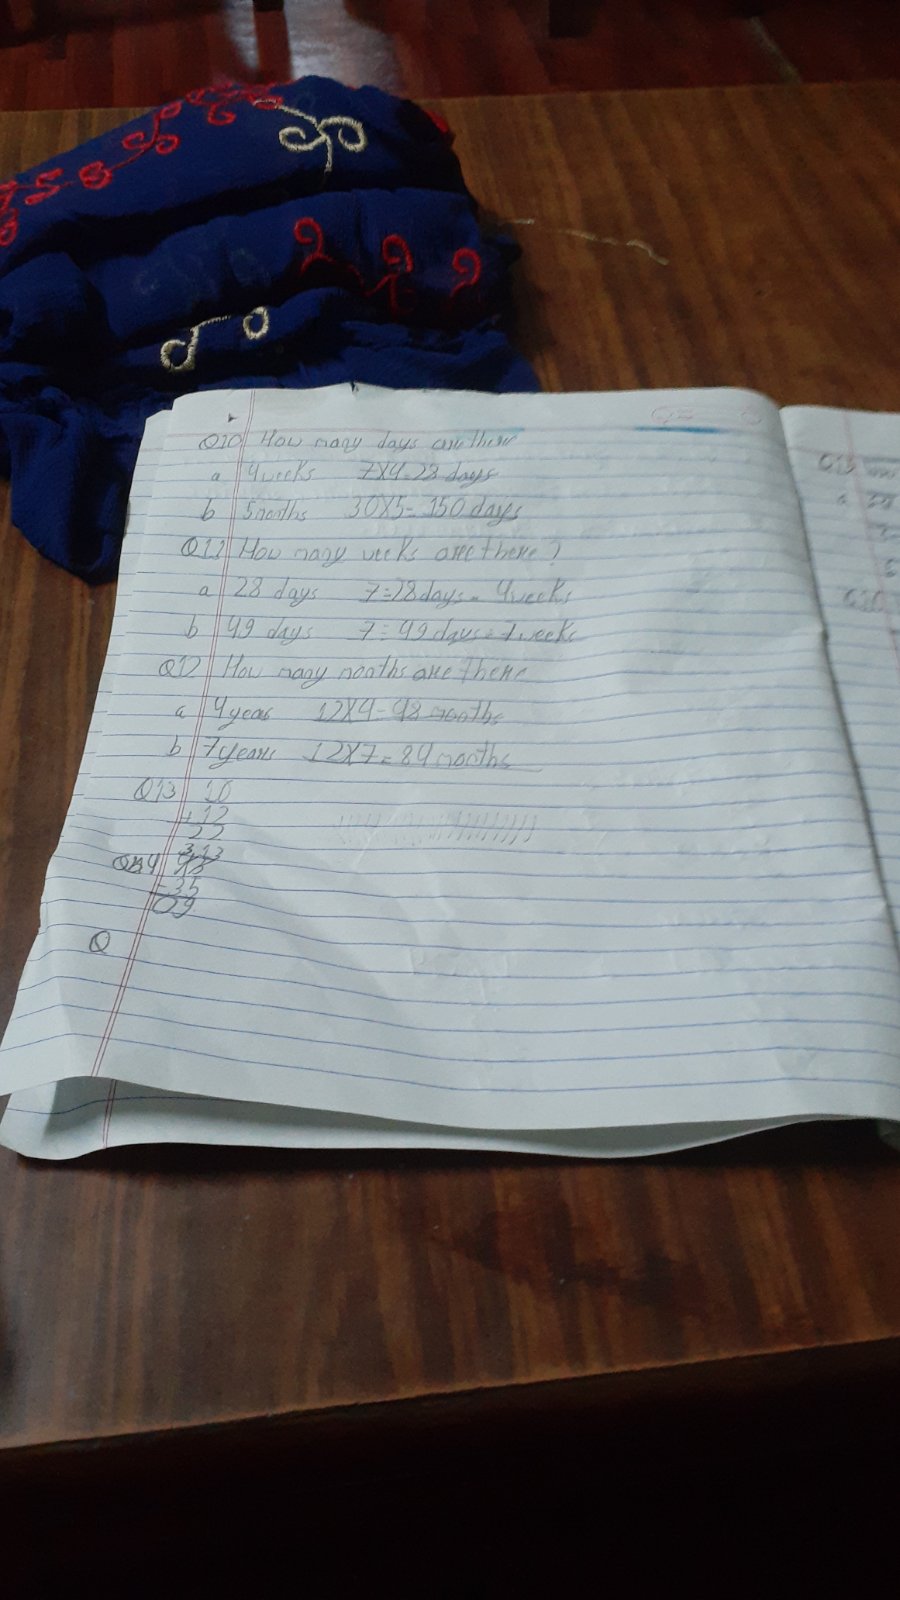 Q10 How many days are there
a 4 weeks 7X4=28 days
b 5 months 30X5= 150 days
Q11 How many weeks are there?
a 28 days 7=28 days= 4 weeks
b 49 days 7= 49 days=7 weeks
Q12 How many months are there
a 4 years 12X4=48 months
b 7 years 12X7=84 months
Q13 10
+12
22
Q14
-35
09
Q